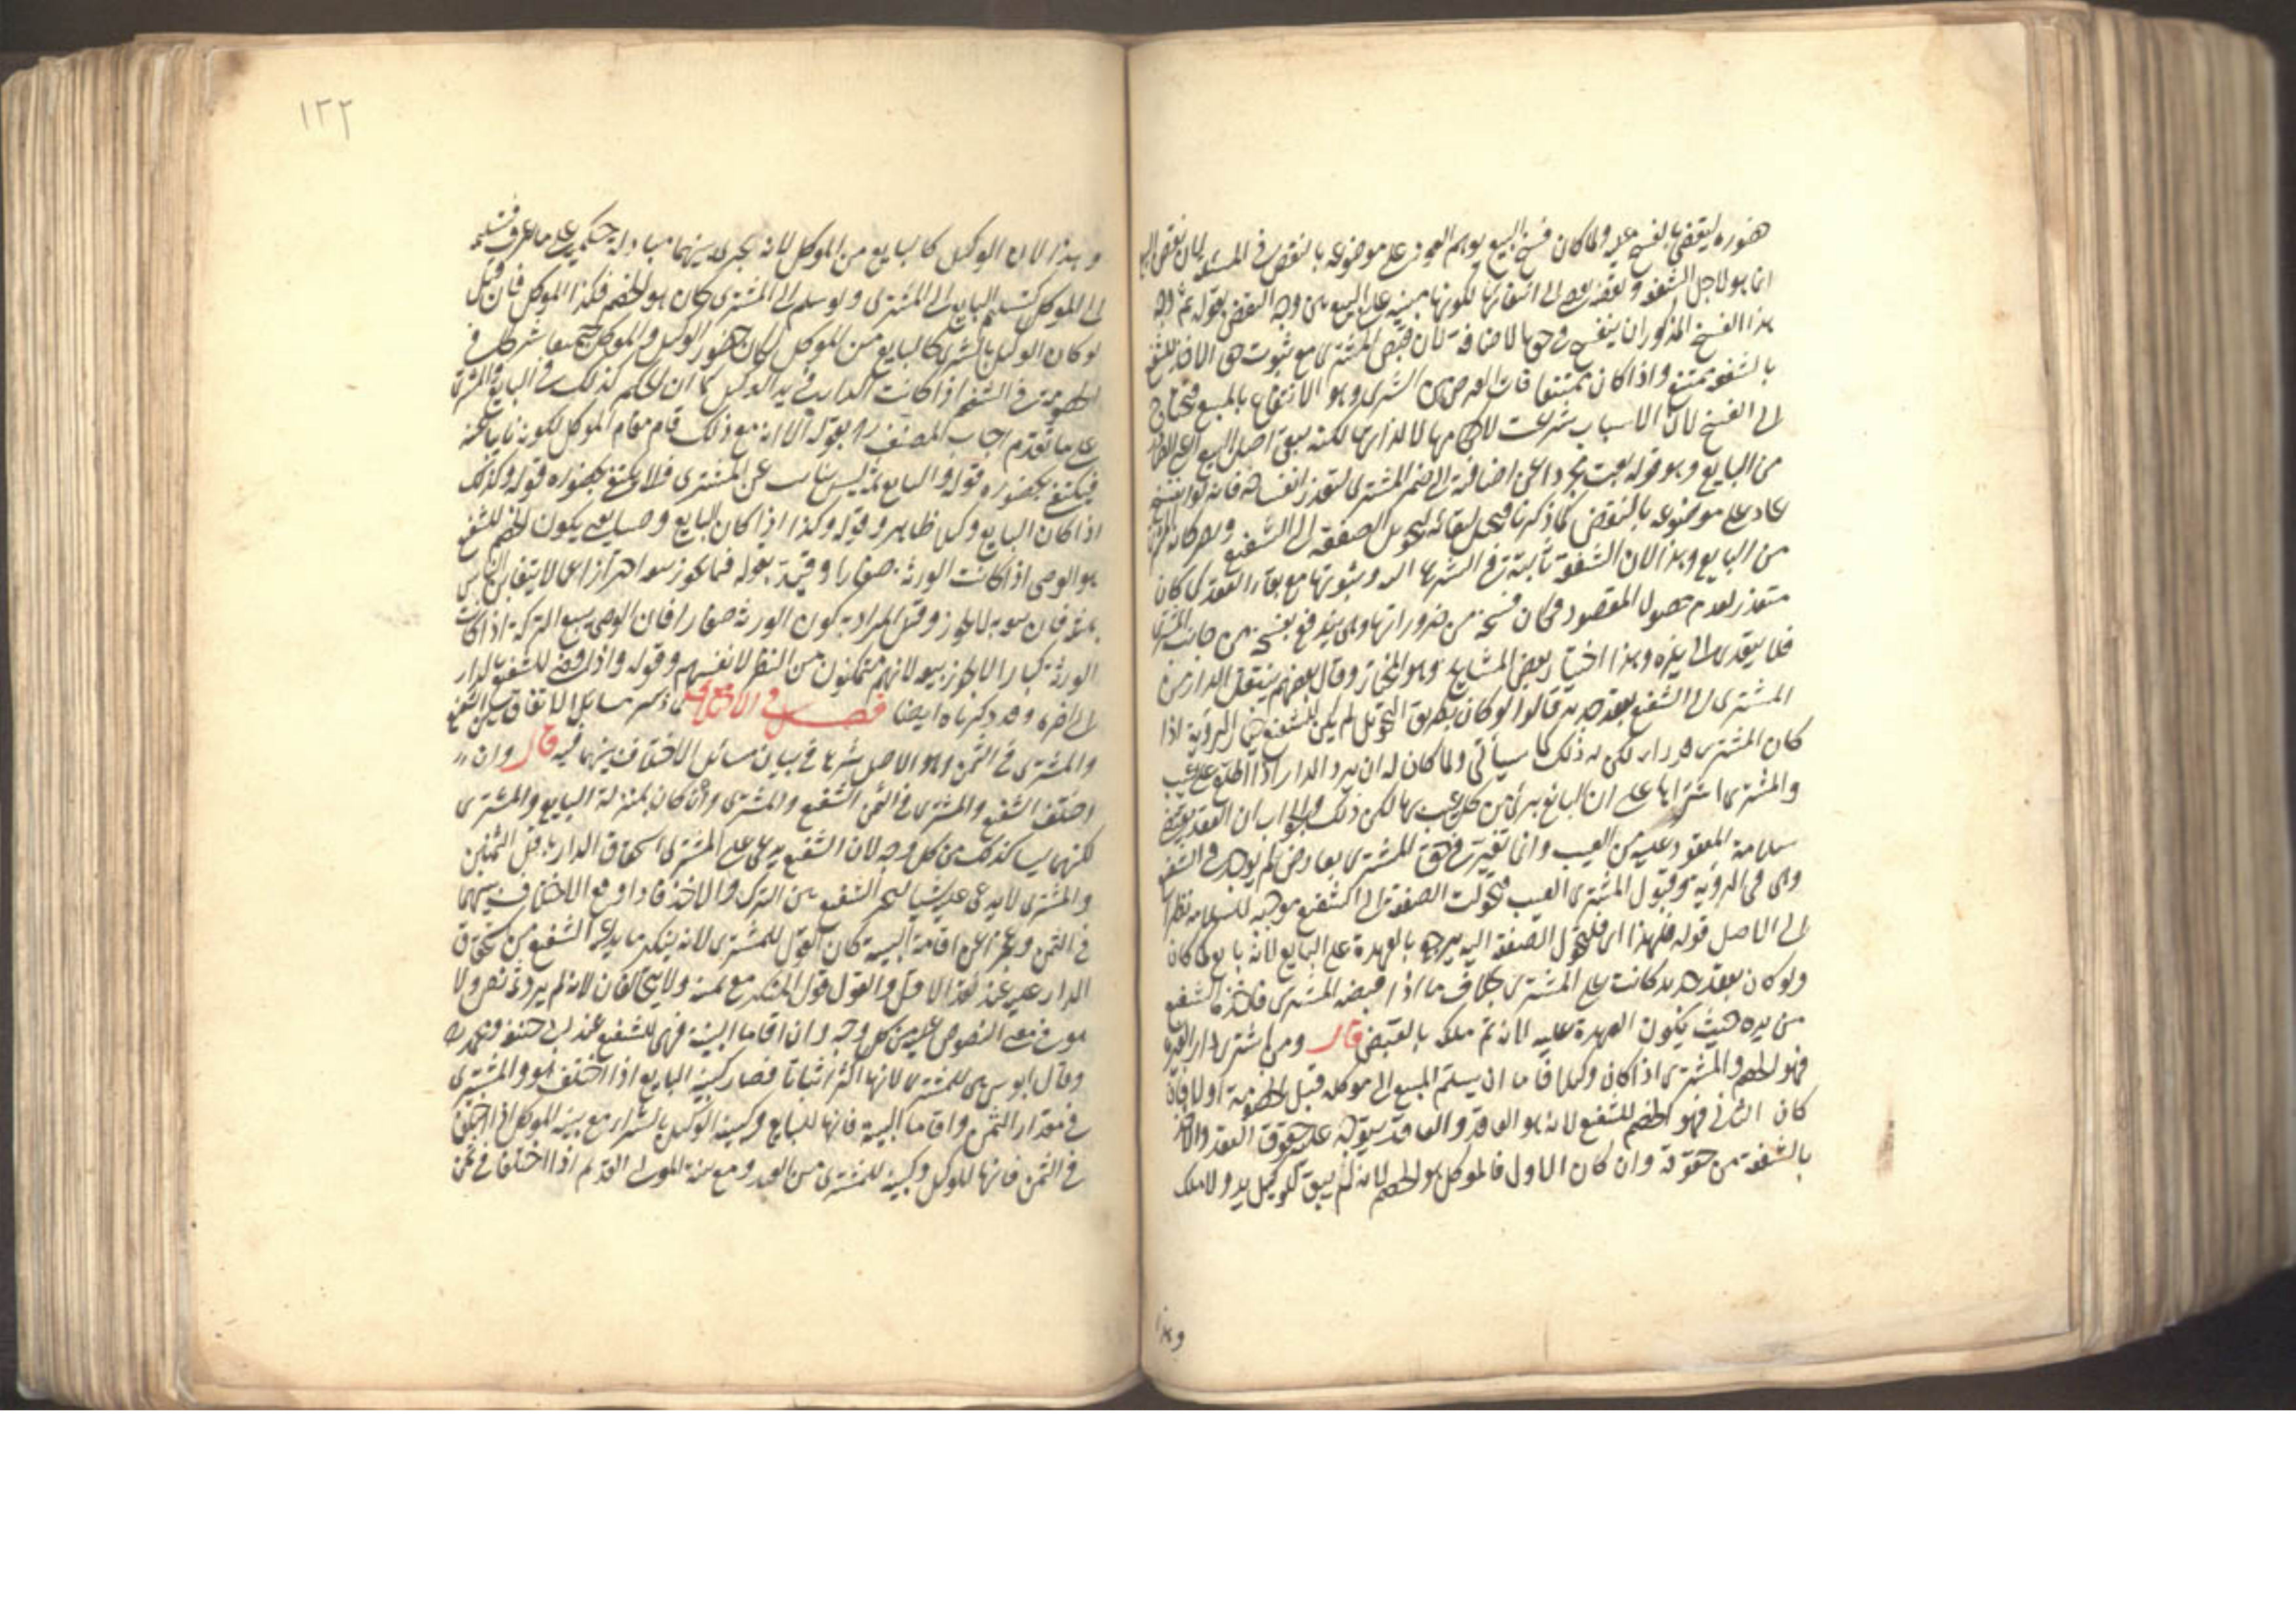 حضوره ليقضى بالفسخ عليه ولما كان فسخ البيع يوهم العود على موضوعه بالنقض في المسئلة لان نقض البيع
انما هو لاجل الشفعة ونقضه يفضي الى انتفائها لكونها مبنية على البيع بين وجه النقض بقوله ثم وجه
هذا الفسخ المذكور ان ينفسخ في حق الاضافة لان قبض المشترى مع ثبوت حق الاخذ للشفيع
بالشفعة ممتنع واذا كان ممتنعا فات الغرض من الشرى وهو الانتفاع بالمبيع فيحتاج
الى الفسخ لان الاسباب شرعت لاحكامها لا لذاتها لكنه يبقى اصل البيع اعني الصادر
من البايع وهو قوله بعت مجردا عن اضافته الى ضمير المشترى لتعذر انفساخه فانه لو انفسخ
عاد على موضوعه بالنقض كما ذكرنا فيحل لبقائه بتحويل الصفقة الى الشفيع ويصير كانه المشترى
من البايع وهذا لان الشفعة ثابتة في الشرع البتة وثبوتها مع بقاء العقد كما كان
متعذر لعدم حصول المقصود فكان فسخه من ضروراتها وهى يندفع بفسخه من جانب المشترى
فلا يتعدى الى غيره وهذا اختيار بعض المشايخ وهو المختار وقال بعضهم ينتقل الدار من
المشترى الى الشفيع بعقد جديد قالوا لو كان بطريق التحويل لم يكن للشفيع خيار الرؤية اذا
كان المشترى قد رآه لكن له ذلك كما سيأتى ولما كان له ان يرد الدار اذا اطلع على عيب
والمشترى اشتراها على ان البايع برئ من كل عيب بها لكن ذلك والجواب ان العقد يقتضى
سلامة المعقود عليه من العيب وانما تغيرت في حق المشترى بعارض لم يوجد في الشفيع
وهى في الرؤية وقبول المشترى العيب فتحولت الصفقة الى الشفيع موجبه للسلامة نظرا
الى الاصل قوله فلهذا اى فلتحول الصفقة اليه يرجع بالعهدة على البايع لانه بايع كما كان
ولو كان بعقد جديد كانت على المشترى بخلاف ما اذا قبضه المشترى فاخذه الشفيع
من يده حيث يكون العهدة عليه لانه تم ملكه بالقبض قال ومن اشترى دارا لغيره
فهو الخصم والمشترى اذا كان وكيلا فاما ان يسلم المبيع الى موكله قبل الخصومة اولا فان
كان الثانى فهو الخصم للشفيع لانه هو العاقد والعاقد يتوجه عليه حقوق العقد والاخذ
بالشفعة من حقوقه وان كان الاول فالموكل هو الخصم لانه لم يبق للوكيل يد ولا ملك
وهذا
١٢٢
وهذا لان الوكيل كالبايع من الموكل لانه يجرى بينهما مبادلة حكمية على ما عرف فتسليمه
الى الموكل كتسليم البايع الى المشترى ولو سلم الى المشترى كان هو الخصم فكذا الموكل فان قيل
لو كان الوكيل بالشرى كالبايع من الموكل لكان حضور الوكيل والموكل جميعا شرطا في
الخصومة في الشفعة اذا كانت الدار في يد الوكيل كما ان الحكم كذلك في البايع والمشترى
على ما تقدم اجاب المصنف ره بقوله الا انه مع ذلك قام مقام الموكل لكونه نايبا عنه
فيكتفى بحضوره قوله والبايع ثمة ليس بنائب عن المشترى فلا يكتفى بحضوره قوله وكذلك
اذا كان البايع وكيلا ظاهر وقوله وكذا اذا كان البايع وصيا يعنى يكون الخصم للشفيع
هو الوصى اذا كانت الورثة صغارا وقيد بقوله فيما يجوز بيعه احترازا عما لا يتغابن الناس
بمثله فان بيعه به لا يجوز وقيل المراد به كون الورثة صغارا فان الوصى يبيع التركة اذا كانت
الورثة كبارا لا يجوز بيعه لانهم متمكنون من النظر لانفسهم وقوله واذا قضى للشفيع بالدار
الى اخره وقد ذكرناه ايضا فصل في الاختلاف لما ذكر مسائل الاتفاق بين الشفيع
والمشترى في الثمن وهو الاصل شرع في بيان مسائل الاختلاف بينهما فيه قال وان
اختلف الشفيع والمشترى في الثمن الشفيع والمشترى وان كان بمنزلة البايع والمشترى
لكنهما ليسا كذلك من كل وجه لان الشفيع يدعى على المشترى استحقاق الدار باقل الثمنين
والمشترى لا يدعى عليه شيئا لتخير الشفيع بين الترك والاخذ فاذا وقع الاختلاف بينهما
في الثمن وعجزا عن اقامة البينة كان القول للمشترى لانه ينكر ما يدعيه الشفيع من استحقاق
الدار عليه عند نقد الاقل والقول قول المنكر مع يمينه ولا يتحالفان لانه لم يرد فيه نص ولا
هو في معنى المنصوص عليه من كل وجه وان اقاما البينة فهى للشفيع عند ابى حنيفة ومحمد ره
وقال ابو يوسف هى للمشترى لانها اكثر اثباتا فصار كبينة البايع اذا اختلف هو والمشترى
في مقدار الثمن واقاما البينة فانها للبايع وكبينة الوكيل بالشراء مع بينة الموكل اذا اختلفا
في الثمن فانها للوكيل وكبينة المشترى من العدو مع بينة المولى القديم اذا اختلفا في ثمن